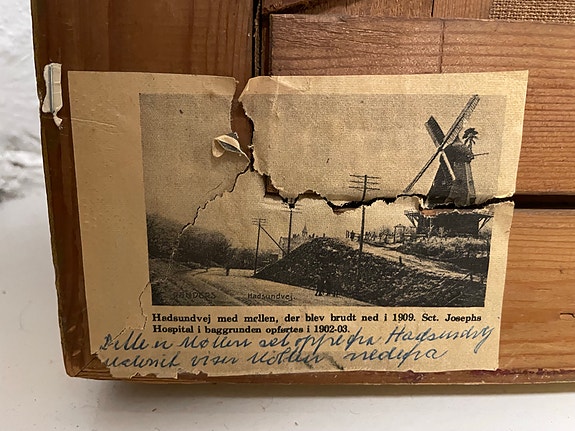 RANDERS Hadsundvej.
Hadsundvej med møllen, der blev brudt ned i 1909. Sct. Josephs
Hospital i baggrunden opførtes i 1902-03.
Møllen set oppe fra Hadsundvej
viser Møllen nedefra